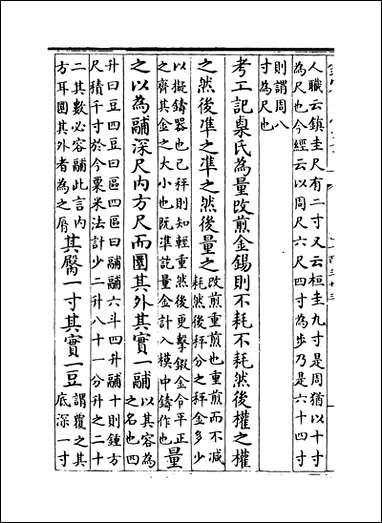 人職云鎮圭尺有二寸又云桓圭九寸是周猶以十寸
為尺也今經云以周尺六尺四寸為步乃是六十四寸
則謂周八
寸為尺也
考工記㮚氏為量改煎金錫則不耗不耗然後權之權
之然後凖之凖之然後量之
改煎重煎也重煎而不減
耗然後秤分之秤金多少
以擬鑄器也已秤則知輕重然後更擊鍛金令平正
之齊其金之大小也既凖訖量金計入模中鑄作也
量
之以為鬴深尺内方尺而圜其外其實一鬴
以其容為
之名也四
升曰豆四豆曰區四區曰鬴鬴六斗四升鬴十則鍾方
尺積千寸於今粟米法計少二升八十一分升之二十
二其數必容鬴此言内
方耳圜其外者為之脣
其臀一寸其實一豆
謂覆之其
底深一寸